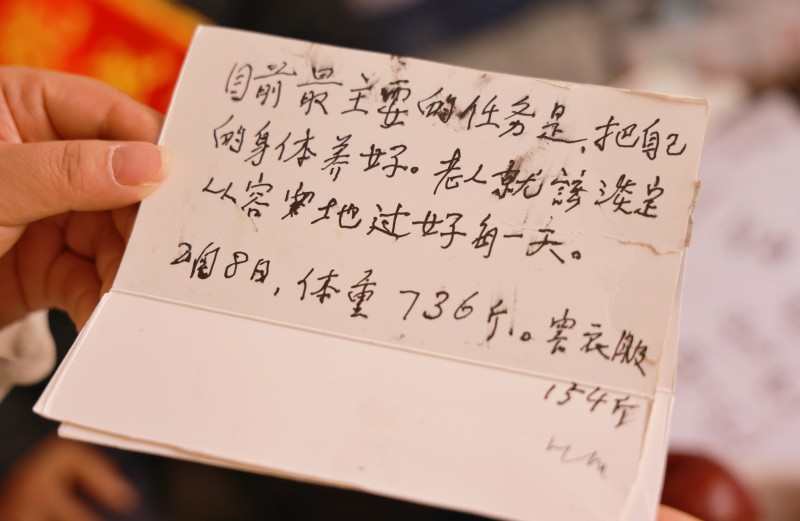 目前最主要的任务是,把自己
的身体养好。老人就該淡定
从容地过好每一天。
2月8日,体重736斤。害衣服
154斤